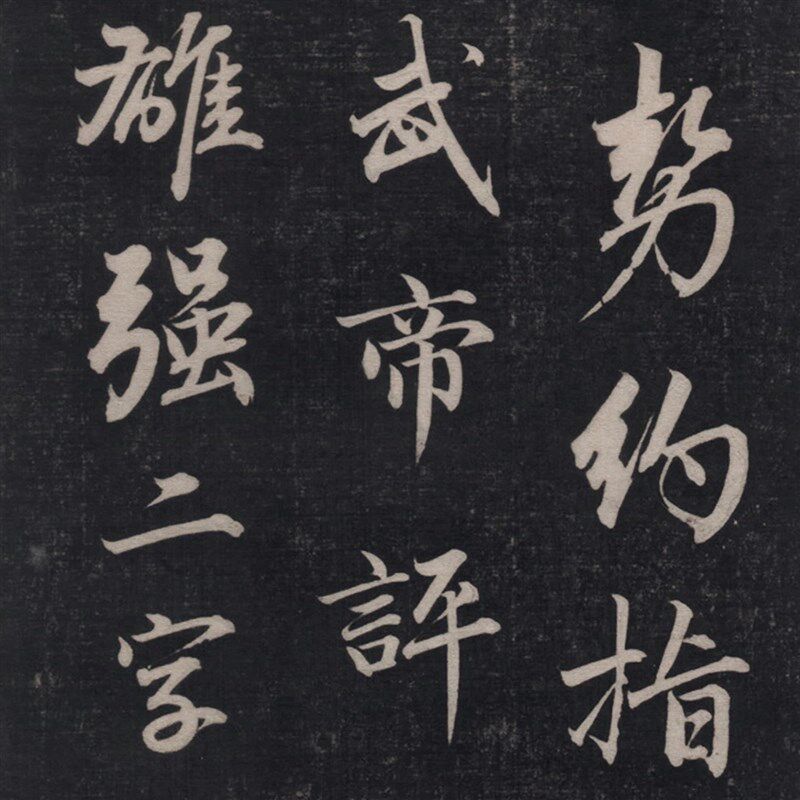 勢約指
武帝評
雄强二字